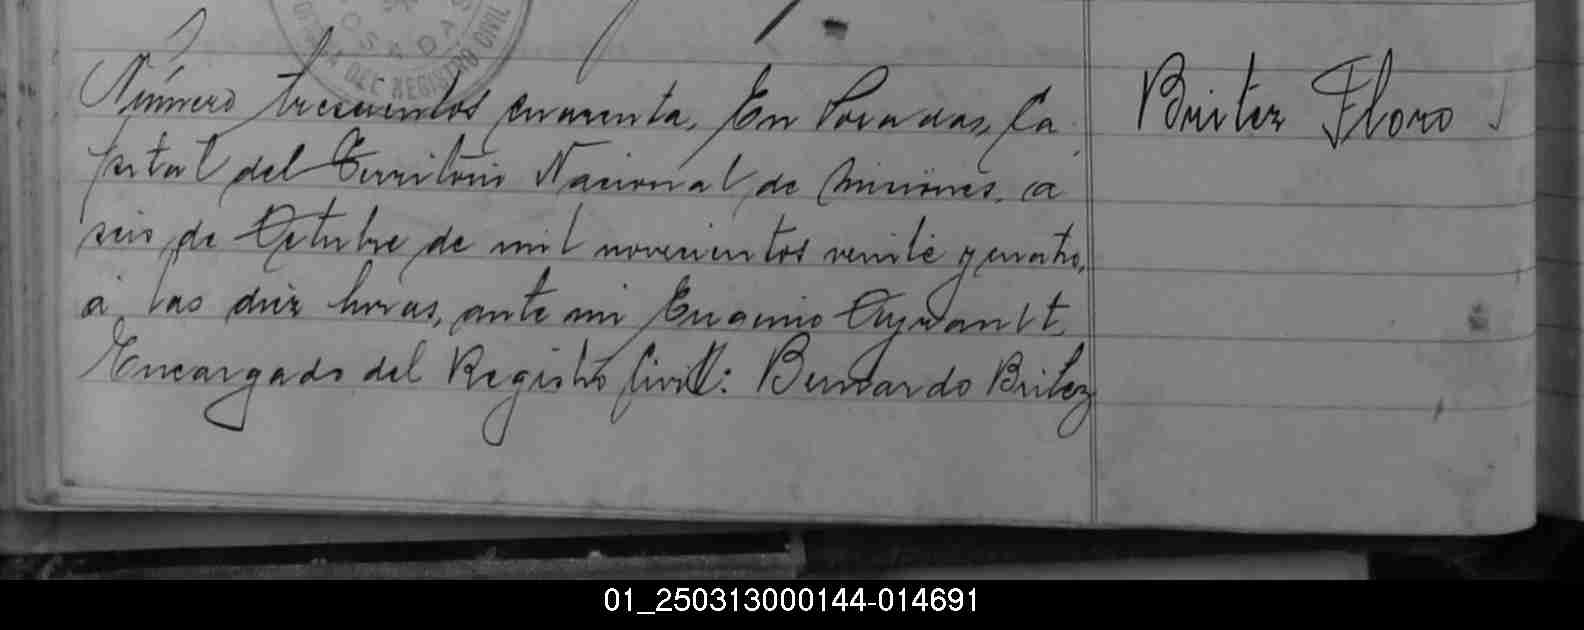 OFICINA DEL REGISTRO CIVIL
POSADAS
Número trescientos cuarenta. En Posadas, Ca
pital del Territorio Nacional de Misiones, a
seis de Octubre de mil novecientos veinte y cuatro,
á las diez horas, ante mi Eugenio
Encargado del Registro Civil: Bernardo Britez
Britez Floro
01_250313000144-014691